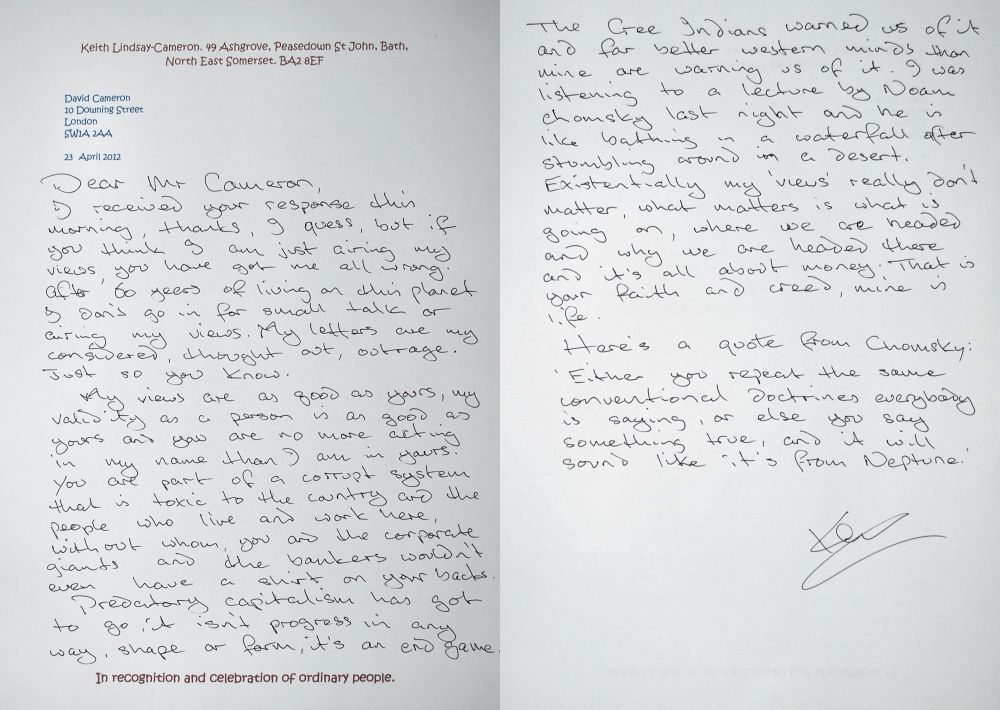 Keith Lindsay-Cameron. 49 Ashgrove, Peasedown St John, Bath,
North East Somerset. BA2 8EF
David Cameron
10 Downing Street
London
SW1A 2AA
23 April 2012
Dear Mr Cameron,
I received your response this
morning, thanks, I guess, but if
you think I am just airing my
views, you have got me all wrong.
After 60 years of living on this planet
I don't go in for small talk or
airing my views. My letters are my
considered, thought out, outrage.
Just so you know.
My views are as good as yours, my
validity as a person is as good as
yours and you are no more acting
in my name than I am in yours.
You are part of a corrupt system
that is toxic to the country and the
people who live and work here,
without whom, you and the corporate
giants and the bankers wouldn't
even have a shirt on your backs.
Predatory capitalism has got
to go, it isn't progress in any
way, shape or form, it's an end game.
In recognition and celebration of ordinary people.
The Cree Indians warned us of it
and far better western minds than
mine are warning us of it. I was
listening to a lecture by Noam
Chomsky last night and he is
like bathing in a waterfall after
stumbling around in a desert.
Existentially my 'views' really don't
matter, what matters is what is
going on, where we are headed
and why we are headed there
and it's all about money. That is
your faith and creed, mine is
life.
Here's a quote from Chomsky:
'Either you repeat the same
conventional doctrines everybody
is saying, or else you say
something true, and it will
sound like it's from Neptune.'